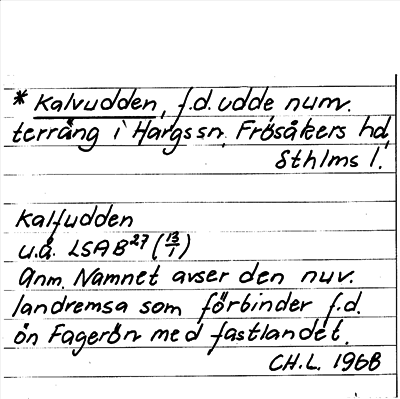 * Kalvudden, f.d. udde, numv.
terräng i Hargs sn, Frösåkers hd,
Sthlms l.
Kalfudden
u.å. LSA B²⁷ (13/1)
Anm. Namnet avser den nuv.
landremsa som förbinder f.d.
ön Fagerön med fastlandet.
CH.L. 1968